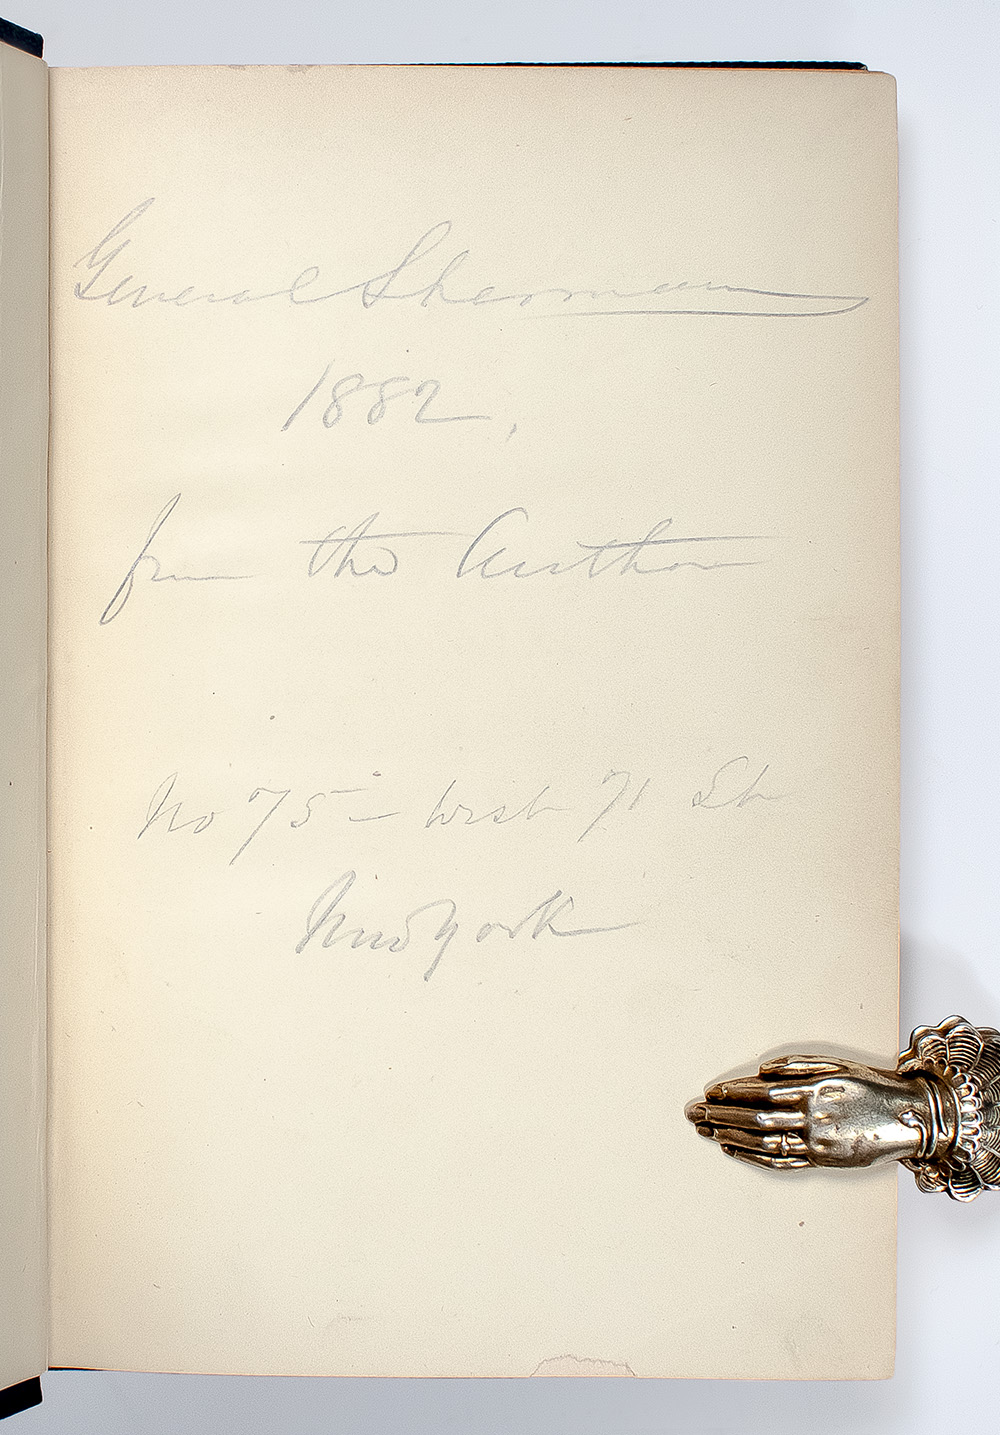 General Sherman
1882,
from the Author
No 75 - West 71 St
New York